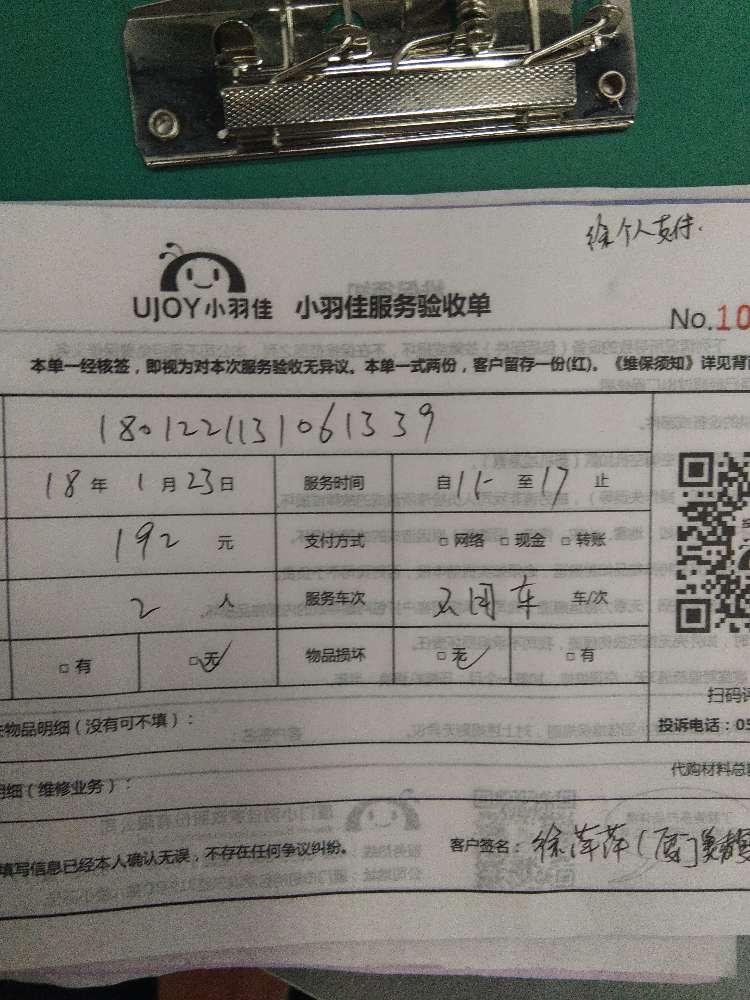 徐个人支付.
UJOY小羽佳 小羽佳服务验收单
No.10
本单一经核签，即视为对本次服务验收无异议。本单一式两份，客户留存一份(红)。《维保须知》详见背
1801221131061339
18年1月23日 服务时间 自11-至17止
192元 支付方式 □网络 □现金 □转账
2人 服务车次 不用车 车/次
□有 □无 物品损坏 □无 □有
扫码
物品明细（没有可不填）：
投诉电话：05
细（维修业务）：
代购材料总
填写信息已经本人确认无误，不存在任何争议纠纷。
客户签名：徐萍萍（厦门